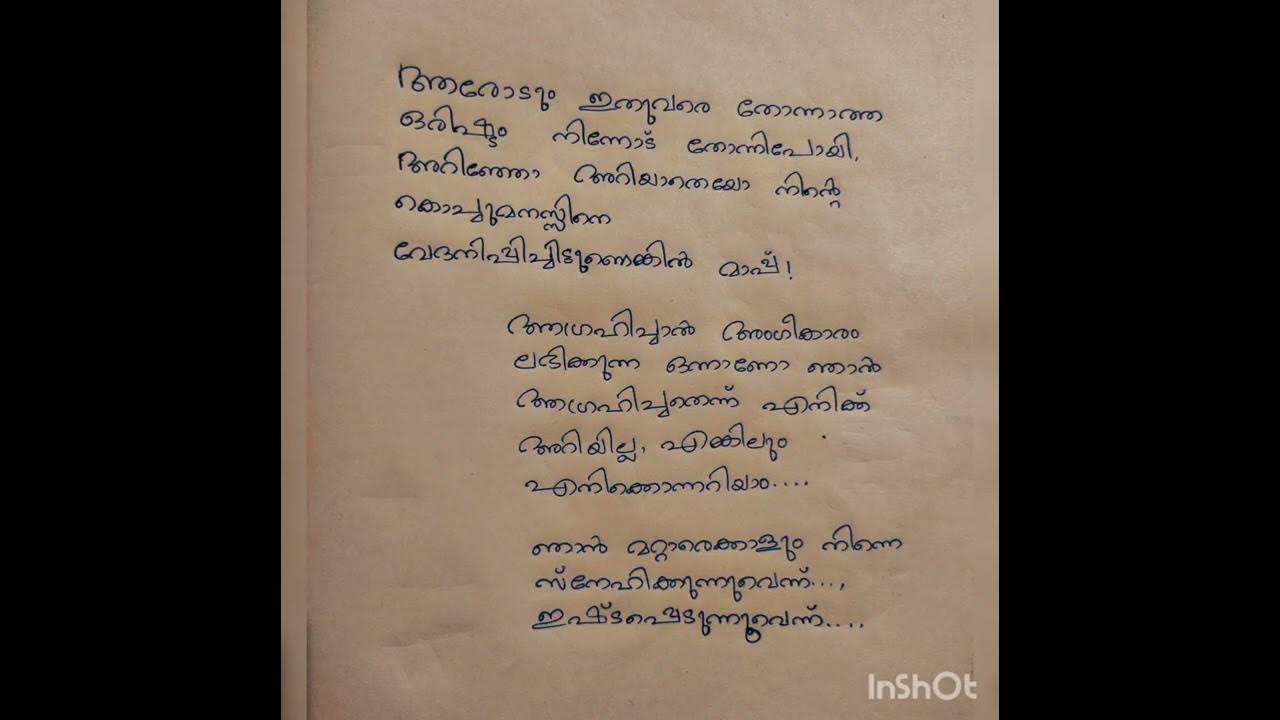 ആരോടും ഇതുവരെ തോന്നാത്ത
ഒരിഷ്ടം നിന്നോട് തോന്നിപോയി,
അറിഞ്ഞോ അറിയാതെയോ നിന്റെ
കൊച്ചുമനസ്സിനെ
വേദനിപ്പിച്ചിട്ടുണെങ്കിൽ മാപ്പ്!
ആഗ്രഹിച്ചാൽ അംഗീകാരം
ലഭിക്കുന്ന ഒന്നാണോ ഞാൻ
ആഗ്രഹിച്ചതെന്ന് എനിക്ക്
അറിയില്ല, എങ്കിലും
എനിക്കൊന്നറിയാം....
ഞാൻ മറ്റാരെക്കാളും നിന്നെ
സ്നേഹിക്കുന്നുവെന്ന്...,
ഇഷ്ടപ്പെടുന്നുവെന്ന്....
InShOt